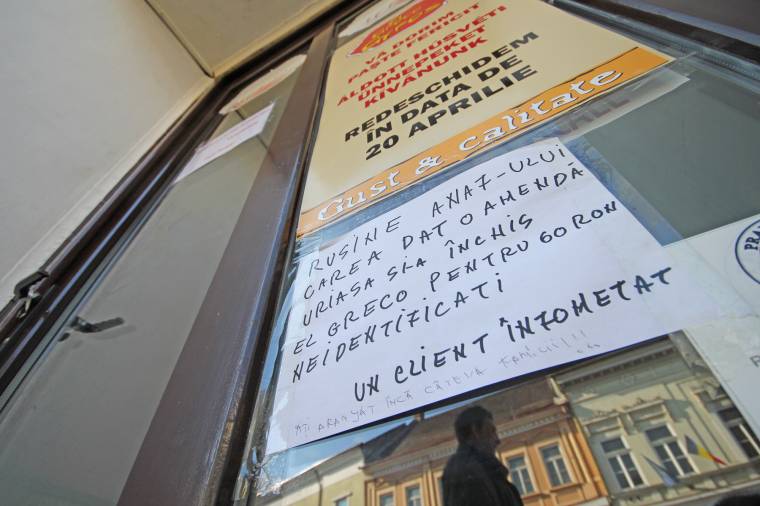 VĂ DORIM
PAȘTE FERICIT
ÁLDOTT HÚSVÉTI
ÜNNEPEKET
KÍVÁNUNK
REDESCHIDEM
ÎN DATA DE
20 APRILIE
Gust & calitate
RUȘINE ANAF-ULUI
CARE A DAT O AMENDĂ
URIAȘĂ ȘI A ÎNCHIS
EL GRECO PENTRU 60 RON
NEIDENTIFICATI
UN CLIENT ÎNFOMETAT
AȚI ARANJAT ÎNCĂ CÂTEVA FAMILII!!